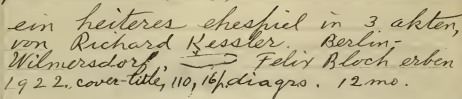 ein heiteres ehespiel in 3 akten,
von Richard Kessler. Berlin-
Wilmersdorf, Felix Bloch erben
1922. cover-title, 110, 16 p. diagrs. 12mo.